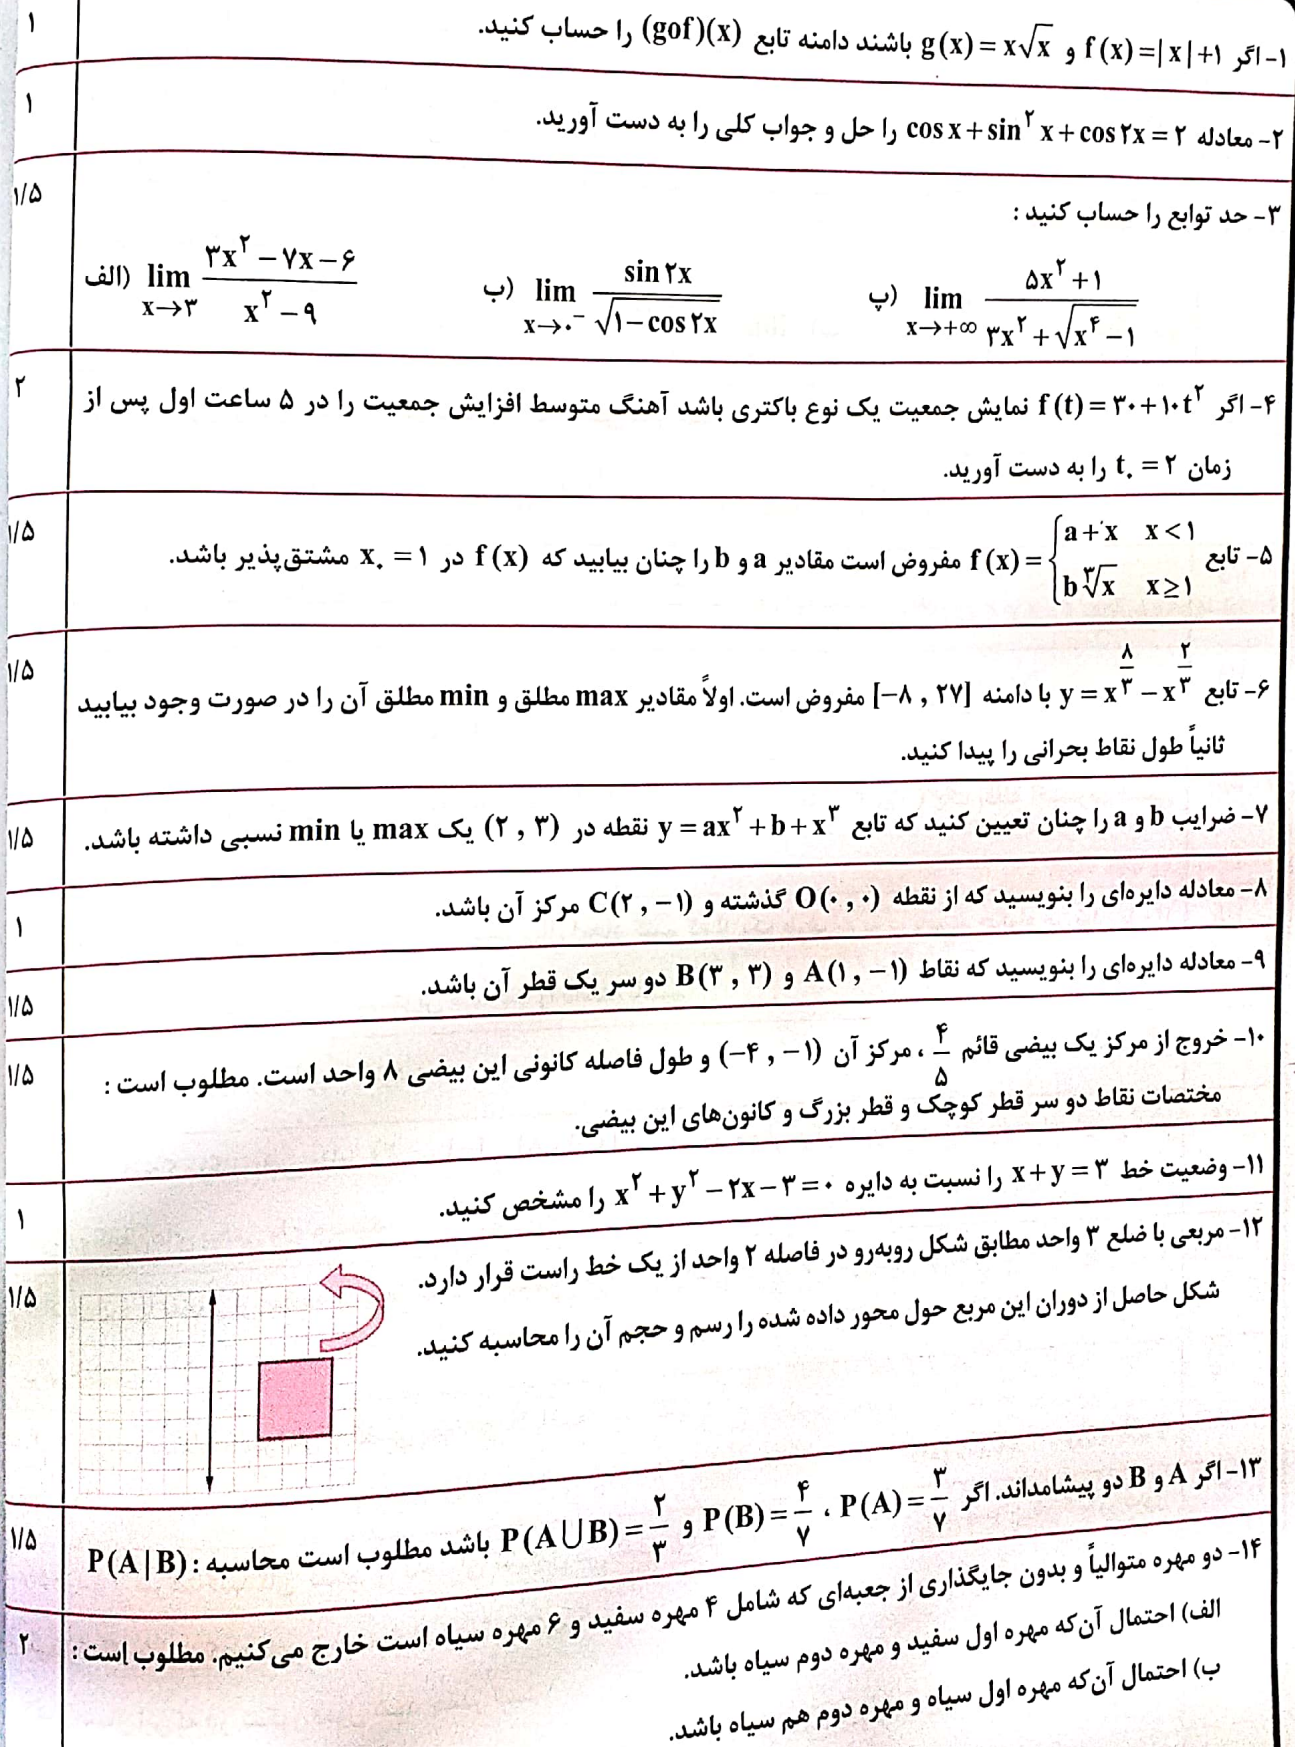 ۱
۱- اگر f(x)=|x|+۱ و g(x)=x√x باشند دامنه تابع (gof)(x) را حساب کنید.
۱
۲- معادله cos x+sin^۲ x+cos ۲x=۲ را حل و جواب کلی را به دست آورید.
۱/۵
۳- حد توابع را حساب کنید :
الف) lim x→۳ (۳x^۲-۷x-۶)/(x^۲-۹)
ب) lim x→۰^- sin ۲x/√(۱-cos ۲x)
پ) lim x→+∞ (۵x^۲+۱)/(۳x^۲+√(x^۴-۱))
۲
۴- اگر f(t)=۳۰+۱۰t^۲ نمایش جمعیت یک نوع باکتری باشد آهنگ متوسط افزایش جمعیت را در ۵ ساعت اول پس از
زمان t_۰=۲ را به دست آورید.
۱/۵
۵- تابع f(x)={a+x x<۱ ; b∛x x≥۱ مفروض است مقادیر a و b را چنان بیابید که f(x) در x_۰=۱ مشتق‌پذیر باشد.
۱/۵
۶- تابع y=x^(۸/۳)-x^(۲/۳) با دامنه [-۸ , ۲۷] مفروض است. اولاً مقادیر max مطلق و min مطلق آن را در صورت وجود بیابید
ثانیاً طول نقاط بحرانی را پیدا کنید.
۱/۵
۷- ضرایب b و a را چنان تعیین کنید که تابع y=ax^۲+b+x^۳ نقطه در (۲ , ۳) یک max یا min نسبی داشته باشد.
۱
۸- معادله دایره‌ای را بنویسید که از نقطه O(۰ , ۰) گذشته و C(۲ , -۱) مرکز آن باشد.
۱/۵
۹- معادله دایره‌ای را بنویسید که نقاط A(۱ , -۱) و B(۳ , ۳) دو سر یک قطر آن باشد.
۱/۵
۱۰- خروج از مرکز یک بیضی قائم ۴/۵ ، مرکز آن (-۴ , -۱) و طول فاصله کانونی این بیضی ۸ واحد است. مطلوب است :
مختصات نقاط دو سر قطر کوچک و قطر بزرگ و کانون‌های این بیضی.
۱
۱۱- وضعیت خط x+y=۳ را نسبت به دایره x^۲+y^۲-۲x-۳=۰ را مشخص کنید.
۱/۵
۱۲- مربعی با ضلع ۳ واحد مطابق شکل روبه‌رو در فاصله ۲ واحد از یک خط راست قرار دارد.
شکل حاصل از دوران این مربع حول محور داده شده را رسم و حجم آن را محاسبه کنید.
۱/۵
۱۳- اگر A و B دو پیشامداند. اگر P(A)=۳/۷ ، P(B)=۴/۷ و P(A∪B)=۲/۳ باشد مطلوب است محاسبه : P(A|B)
۲
۱۴- دو مهره متوالیاً و بدون جایگذاری از جعبه‌ای که شامل ۴ مهره سفید و ۶ مهره سیاه است خارج می‌کنیم. مطلوب است :
الف) احتمال آن‌که مهره اول سفید و مهره دوم سیاه باشد.
ب) احتمال آن‌که مهره اول سیاه و مهره دوم هم سیاه باشد.